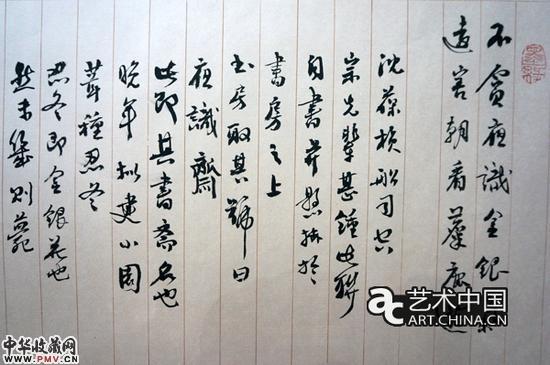 不貪夜識金銀氣
遠害朝看麋鹿遊
沈葆楨船司空
宗先輩甚鍾此聯
自書并懸掛於
書房之上
書房取其號曰
夜識齋
此即其書齋名也
晚年拟建小園
葺種忍冬
忍冬即金銀花也
然未幾則薨
艺术中国
ART.CHINA.CN
中华收藏网
www.PMV.CN